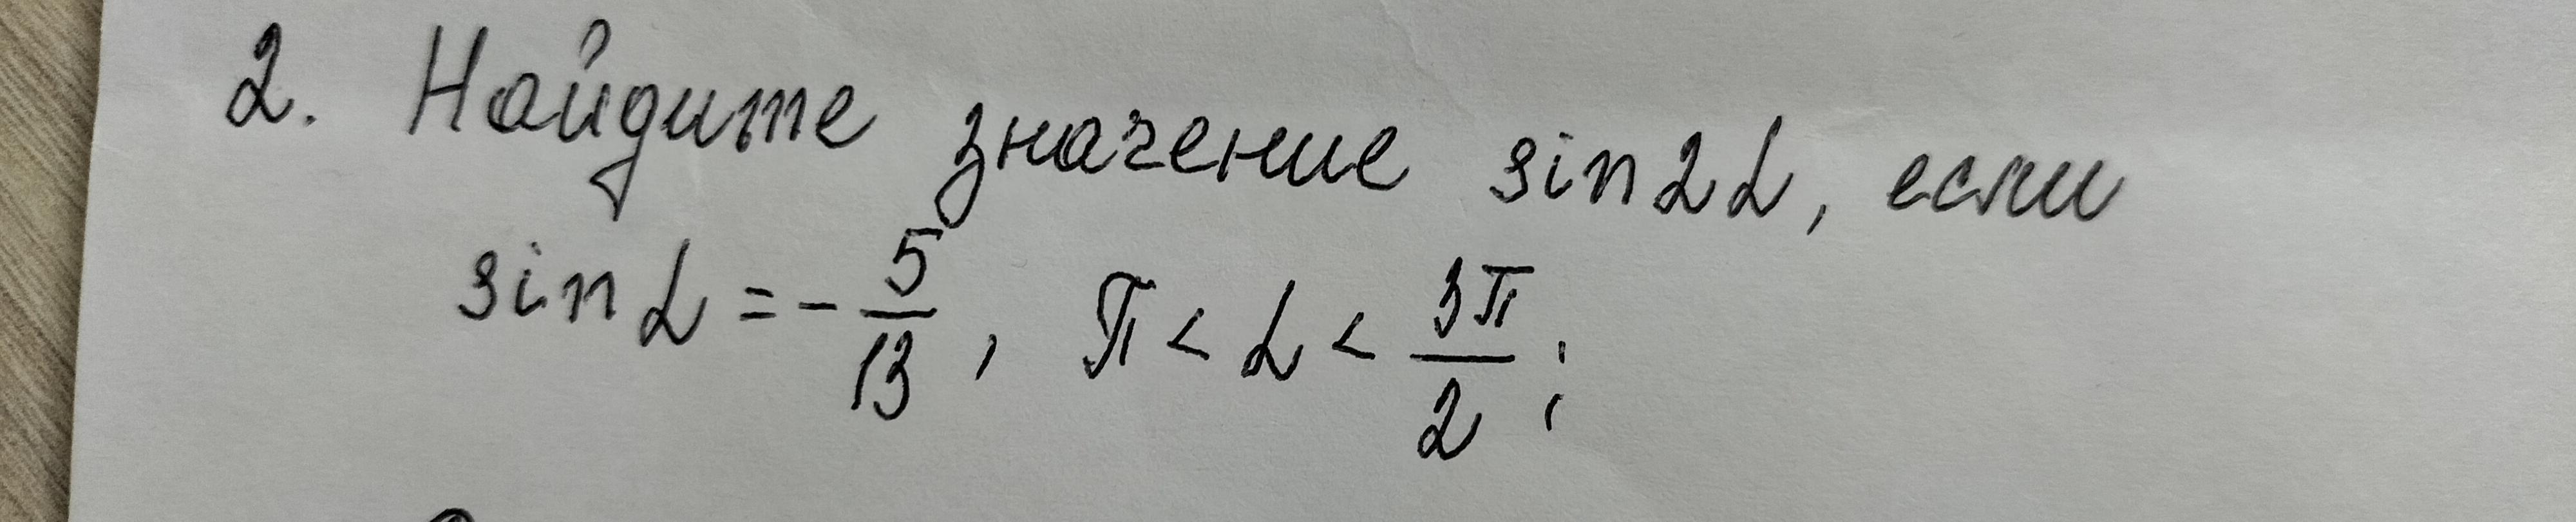 2. Найдите значение sin2α, если
sinα = -5/13, π < α < 3π/2;